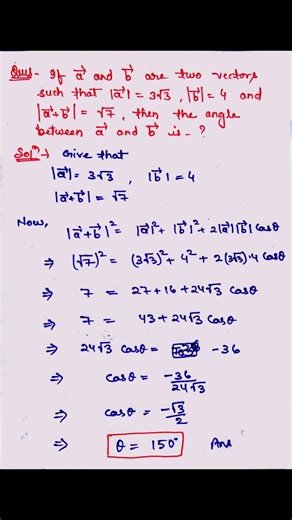 Ques- If a⃗ and b⃗ are two vectors
such that |a⃗| = 3√3, |b⃗| = 4 and
|a⃗+b⃗| = √7, then the angle
between a⃗ and b⃗ is - ?
Solⁿ:- Give that
|a⃗| = 3√3, |b⃗| = 4
|a⃗+b⃗| = √7
Now,
|a⃗+b⃗|² = |a⃗|² + |b⃗|² + 2|a⃗||b⃗| cosθ
⇒ (√7)² = (3√3)² + 4² + 2(3√3)·4 cosθ
⇒ 7 = 27+16+24√3 cosθ
⇒ 7 = 43+24√3 cosθ
⇒ 24√3 cosθ = -36
⇒ cosθ = -36/24√3
⇒ cosθ = -√3/2
⇒ θ = 150° Ans